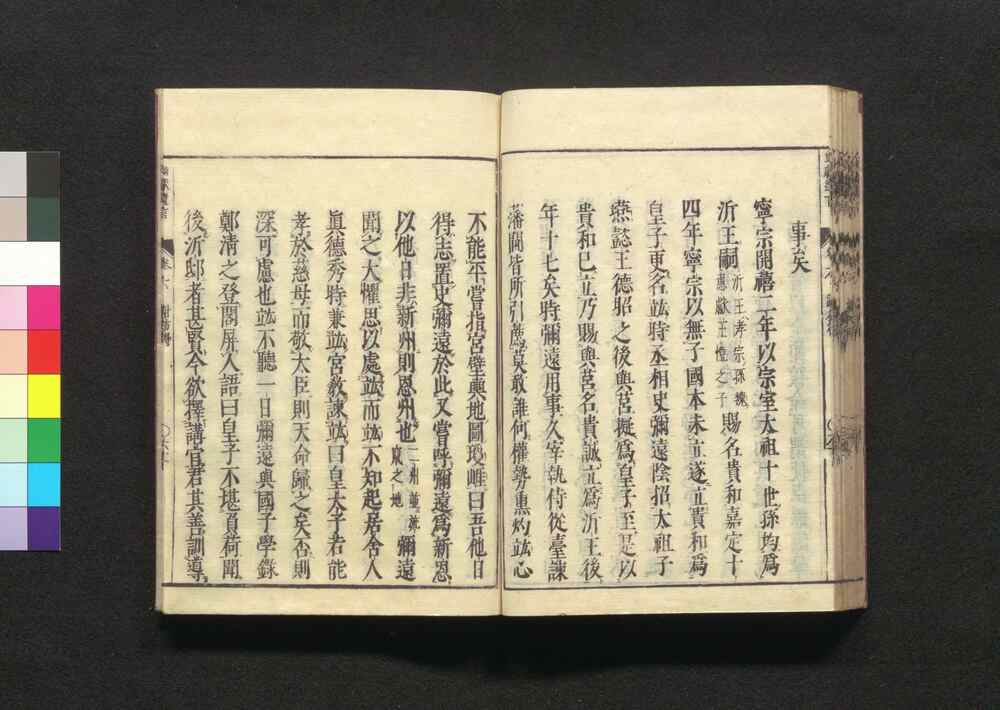 事矣
寧宗開禧二年以宗室太祖十世孫均爲
沂王嗣沂王孝宗孫魏惠獻王愷之子賜名貴和嘉定十
四年寧宗以無子國本未立遂立貴和爲
皇子更名竑時丞相史彌遠陰招太祖子
燕懿王德昭之後與莒擬爲皇子至是以
貴和已立乃賜與莒名貴誠立爲沂王後
年十七矣時彌遠用事久宰執侍從臺諫
藩閫皆所引薦莫敢誰何權勢熏灼竑心
不能平嘗指宮壁輿地圖瓊崖曰吾他日
得志置史彌遠於此又嘗呼彌遠爲新恩
以他日非新州則恩州也二州並廣東之地彌遠
聞之大懼思以處竑而竑不知起居舍人
眞德秀時兼竑宮敎諫竑曰皇太子若能
孝於慈母而敬大臣則天命歸之矣否則
深可慮也竑不聽一日彌遠與國子學錄
鄭清之登閣屏人語曰皇子不堪負荷聞
後沂邸者甚賢今欲擇講官君其善訓導